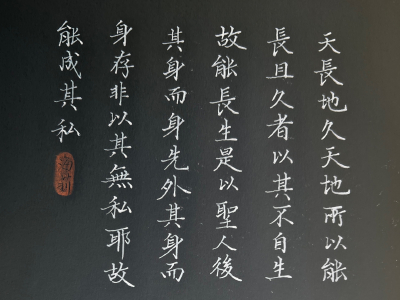 天長地久天地所以能
長且久者以其不自生
故能長生是以聖人後
其身而身先外其身而
身存非以其無私耶故
能成其私